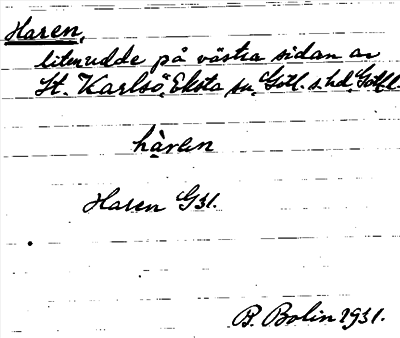 Haren,
liten udde på västra sidan av
St. Karlsö, Eksta sn, Gotl. s. hd, Gotl. l.
hàren
Haren G 31.
B. Bolin 1931.